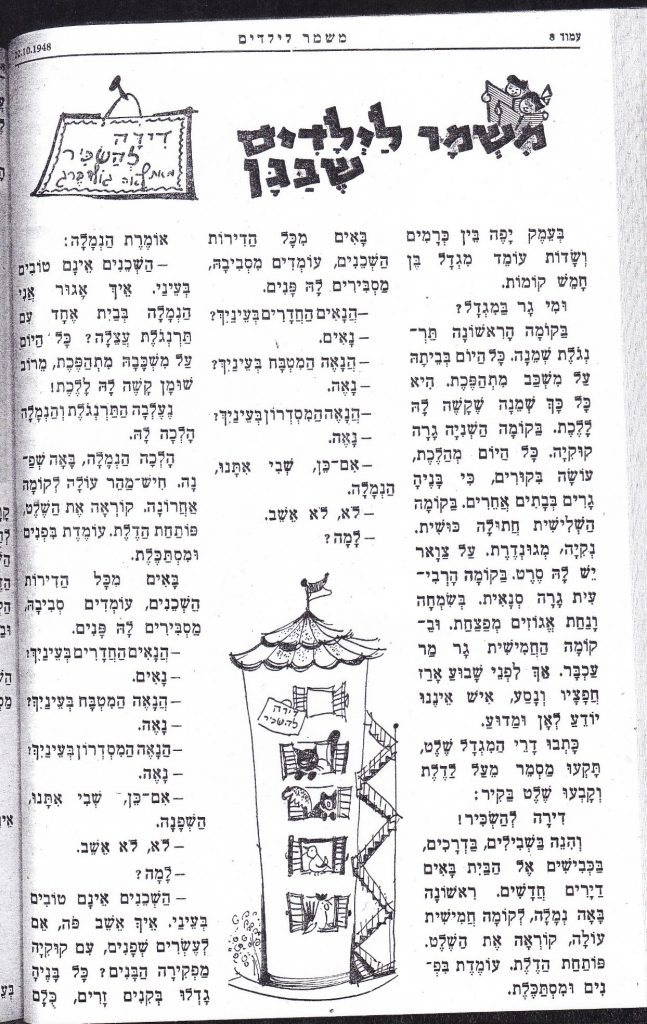 עמוד 8
משמר לילדים
22.10.1948
מִשְׁמָר לַיְלָדִים
שֶׁבַּגָּן
דִּירָה
לְהַשְׂכִּיר
מאת לאה גולדברג
בְּעֵמֶק יָפֶה בֵּין כְּרָמִים
וְשָׂדוֹת עוֹמֵד מִגְדָּל בֶּן
חָמֵשׁ קוֹמוֹת.
וּמִי גָר בַּמִּגְדָּל?
בַּקּוֹמָה הָרִאשׁוֹנָה תַּרְ־
נְגֹלֶת שְׁמֵנָה. כָּל הַיּוֹם בְּבֵיתָהּ
עַל מִשְׁכָּב מִתְהַפֶּכֶת. הִיא
כָּל כָּךְ שְׁמֵנָה שֶׁקָּשֶׁה לָהּ
לָלֶכֶת. בַּקּוֹמָה הַשְּׁנִיָּה גָּרָה
קוּקִיָּה. כָּל הַיּוֹם מְהַלֶּכֶת,
עוֹשָׂה בִּקּוּרִים, כִּי בָּנֶיהָ
גָרִים בְּבָתִּים אֲחֵרִים. בַּקּוֹמָה
הַשְּׁלִישִׁית חֲתוּלָה כּוּשִׁית.
נְקִיָּה, מְגֻנְדֶּרֶת. עַל צַוָּאר
יֵשׁ לָהּ סֶרֶט. בַּקּוֹמָה הָרְבִי־
עִית גָּרָה סְנָאִית. בְּשִׂמְחָה
וָנַחַת אֱגוֹזִים מְפַצַּחַת. וּבַ־
קּוֹמָה הַחֲמִישִׁית גָּר מַר
עַכְבָּר. אַךְ לִפְנֵי שָׁבוּעַ אָרַז
חֲפָצָיו וְנָסַע, אִישׁ אֵינֶנּוּ
יוֹדֵעַ לְאָן וּמַדּוּעַ.
כָּתְבוּ דָּיְרֵי הַמִּגְדָּל שֶׁלֶט,
תָּקְעוּ מַסְמֵר מֵעַל לַדֶּלֶת
וְקָבְעוּ שֶׁלֶט בַּקִּיר:
דִּירָה לְהַשְׂכִּיר!
וְהִנֵּה בַּשְּׁבִילִים, בַּדְּרָכִים,
בַּכְּבִישִׁים אֶל הַבַּיִת בָּאִים
דַּיָּרִים חֲדָשִׁים. רִאשׁוֹנָה
בָּאָה נְמָלָה, לְקוֹמָה חֲמִישִׁית
עוֹלָה, קוֹרְאָה אֶת הַשֶּׁלֶט.
פּוֹתַחַת הַדֶּלֶת. עוֹמֶדֶת בִּפְ־
נִים וּמִסְתַּכֶּלֶת.
בָּאִים מִכָּל הַדִּירוֹת
הַשְּׁכֵנִים, עוֹמְדִים מִסְּבִיבָהּ,
מַסְבִּירִים לָהּ פָּנִים.
— הֲנָאִים הַחֲדָרִים בְּעֵינַיִךְ?
— נָאִים.
— הֲנָאֶה הַמִּטְבָּח בְּעֵינַיִךְ?
— נָאֶה.
— הֲנָאֶה הַמִּסְדְּרוֹן בְּעֵינַיִךְ?
— נָאֶה.
— אִם־כֵּן, שְׁבִי אִתָּנוּ,
הַנְּמָלָה.
— לֹא, לֹא אֵשֵׁב.
— לָמָה?
דירה
להשכיר
אוֹמֶרֶת הַנְּמָלָה:
— הַשְּׁכֵנִים אֵינָם טוֹבִים
בְּעֵינַי. אֵיךְ אָגוּר אֲנִי
הַנְּמָלָה בְּבַיִת אֶחָד עִם
תַּרְנְגֹלֶת עֲצֵלָה? כָּל הַיּוֹם
עַל מִשְׁכָּבָהּ מִתְהַפֶּכֶת, מֵרוֹב
שׁוּמָן קָשֶׁה לָהּ לָלֶכֶת!
נֶעֶלְבָה הַתַּרְנְגֹלֶת וְהַנְּמָלָה
הָלְכָה לָהּ.
הָלְכָה הַנְּמָלָה, בָּאָה שְׁפַ־
נָה. חִישׁ־מַהֵר עוֹלָה לְקוֹמָה
אַחֲרוֹנָה. קוֹרְאָה אֶת הַשֶּׁלֶט,
פּוֹתַחַת הַדֶּלֶת. עוֹמֶדֶת בִּפְנִים
וּמִסְתַּכֶּלֶת.
בָּאִים מִכָּל הַדִּירוֹת
הַשְּׁכֵנִים, עוֹמְדִים סְבִיבָהּ,
מַסְבִּירִים לָהּ פָּנִים.
— הֲנָאִים הַחֲדָרִים בְּעֵינַיִךְ?
— נָאִים.
— הֲנָאֶה הַמִּטְבָּח בְּעֵינַיִךְ?
— נָאֶה.
— הֲנָאֶה הַמִּסְדְּרוֹן בְּעֵינַיִךְ?
— נָאֶה.
— אִם־כֵּן, שְׁבִי אִתָּנוּ,
הַשְּׁפָנָה.
— לֹא, לֹא אֵשֵׁב.
— לָמָה?
— הַשְּׁכֵנִים אֵינָם טוֹבִים
בְּעֵינַי. אֵיךְ אֵשֵׁב פֹּה, אֵם
לְעֶשְׂרִים שְׁפַנִּים, עִם קוּקִיָּה
מַפְקִירָה הַבָּנִים? כָּל בָּנֶיהָ
גָדְלוּ בְּקִנִּים זָרִים, כֻּלָּם